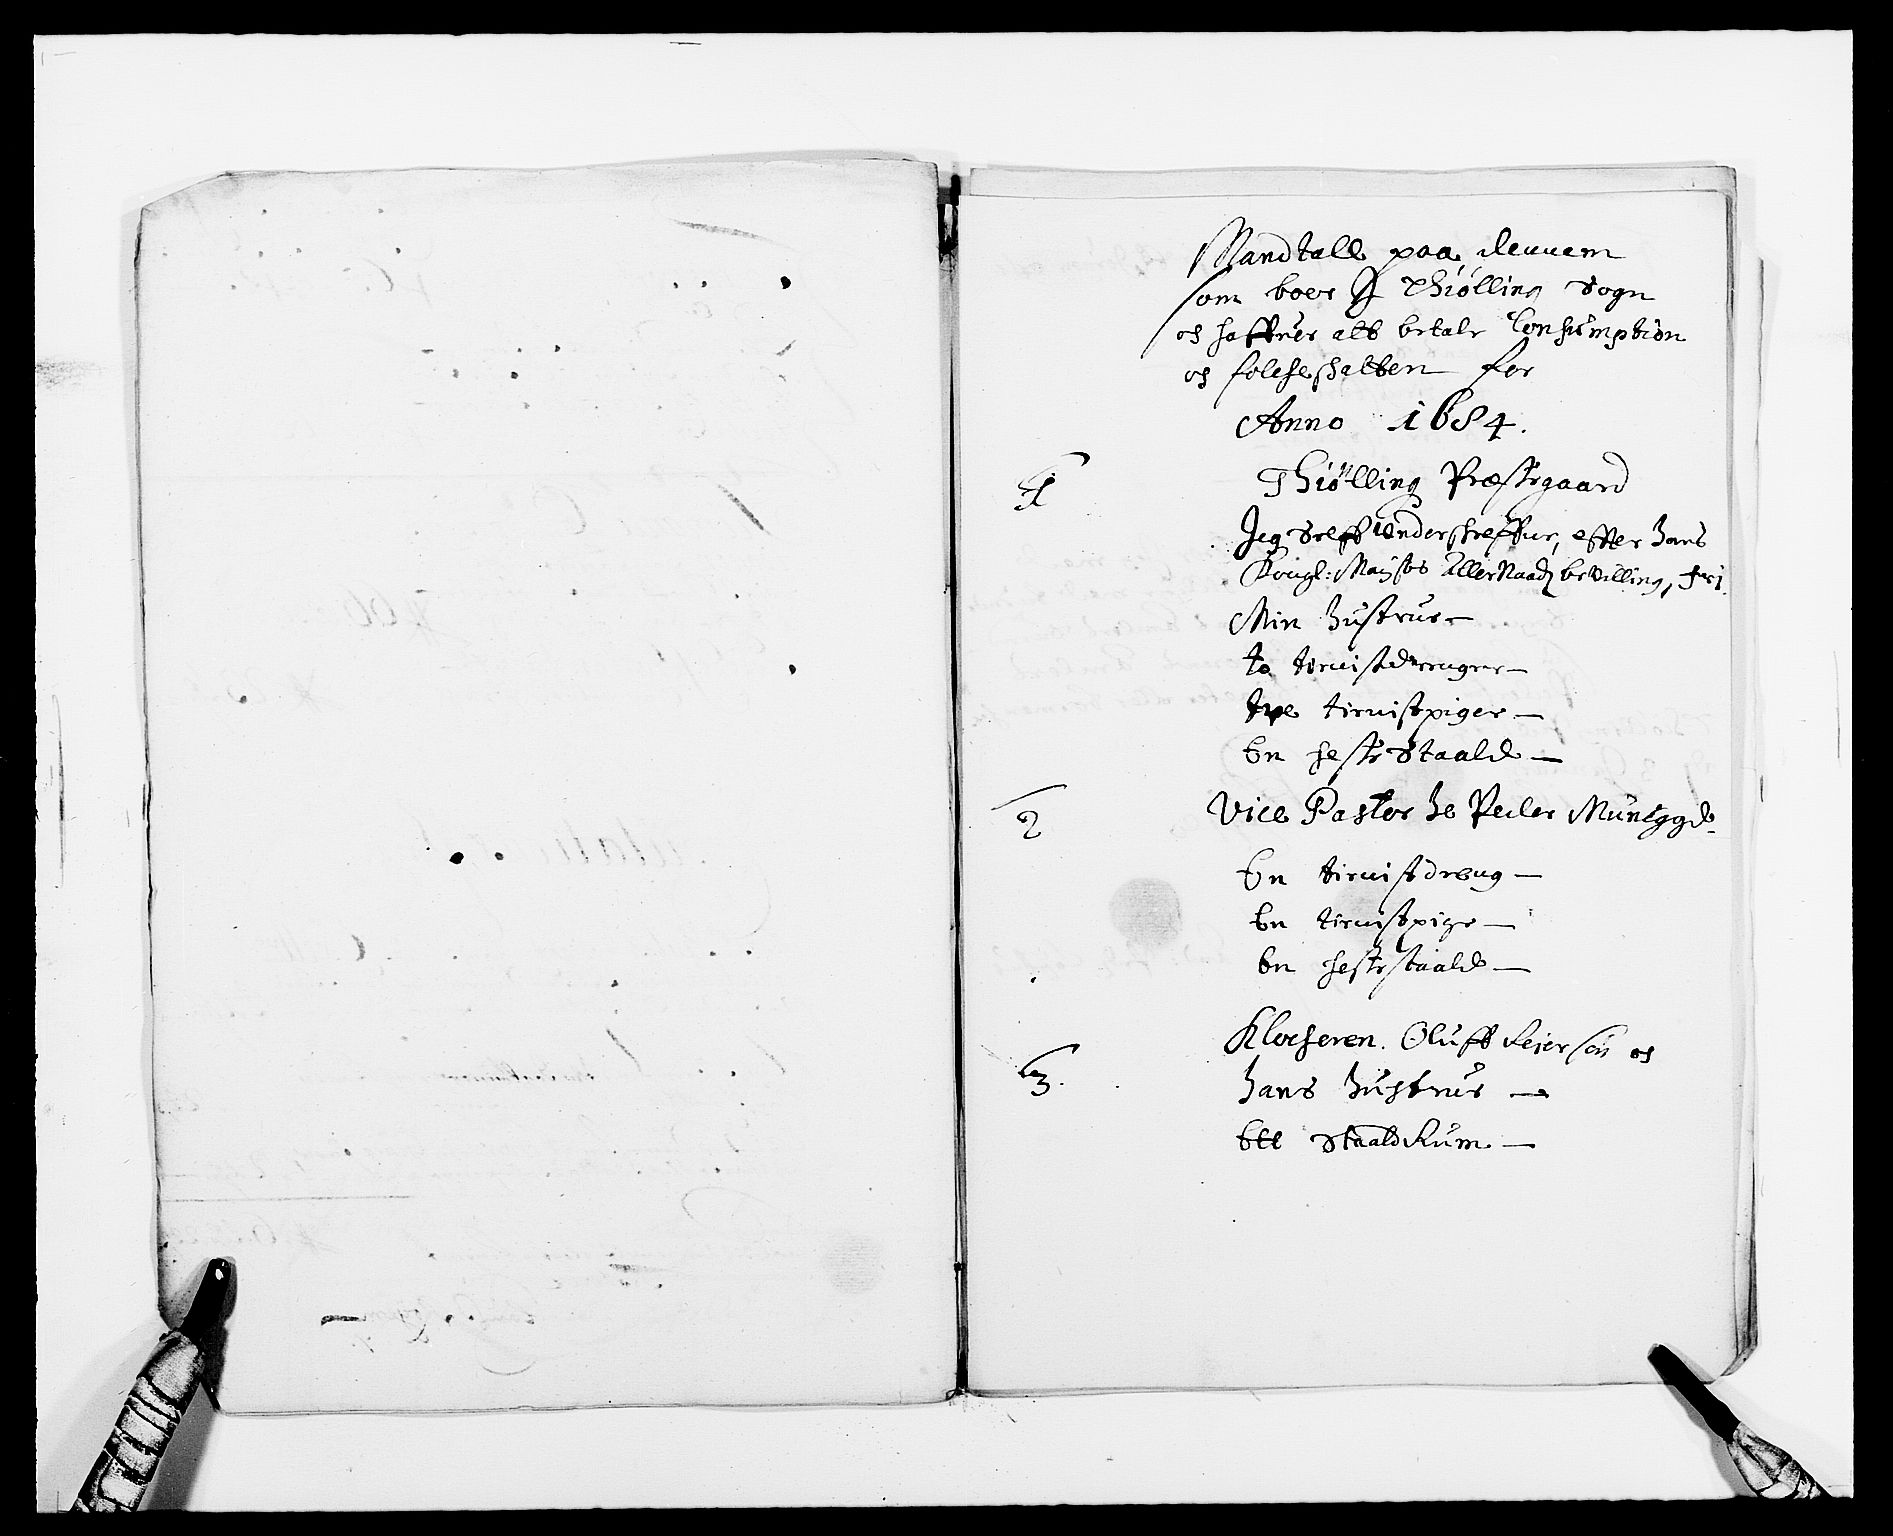 Mandtall paa dennem
som boer J Thiølling Sogn
og haffuer att betale Consumption
og folcheskatten for
Anno 1684.
1 Thiølling Præstegaard
Jeg Self underskreffuer, efter hans
Kongl: Mayjts AllerNaad bevilling, fri
Min hustrue
to tienistdrenger
tve tienistpiger
En hestestaald
2 Vice Pastor he Peder
En tienistdreng
En tienistpige
En hestestaald
3. Klocheren. Oluff Leierson og
hans hustrue
Ett StaaldRum